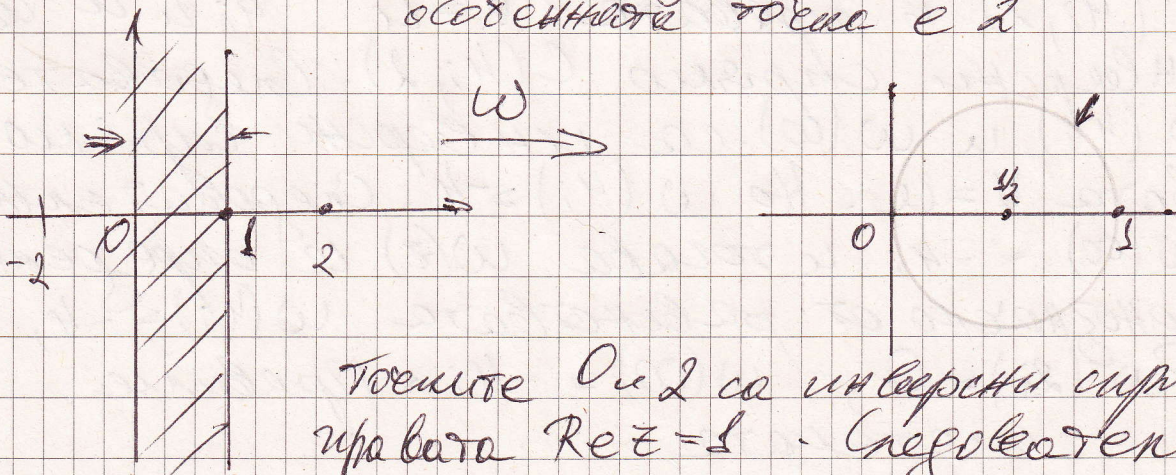 особенната точка е 2
ω
1/2
0 1
-2 0 1 2
Точките 0 и 2 са инверсни спр
правата Re z = 1 . Следовател